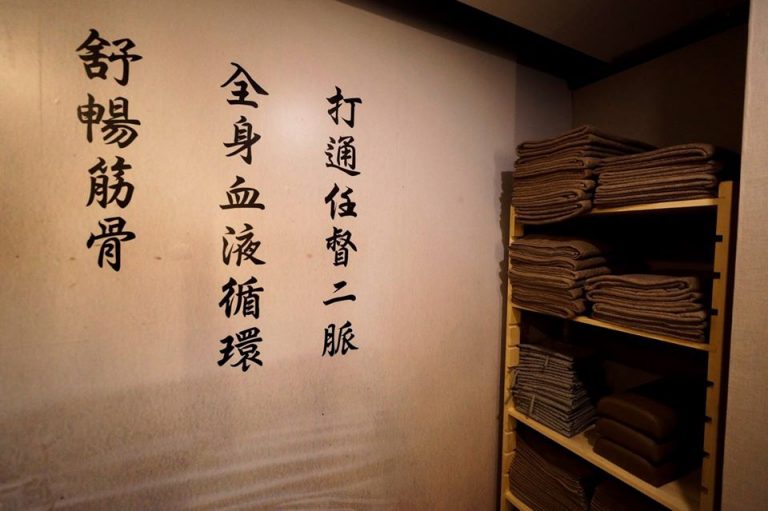 打通任督二脈
全身血液循環
舒暢筋骨